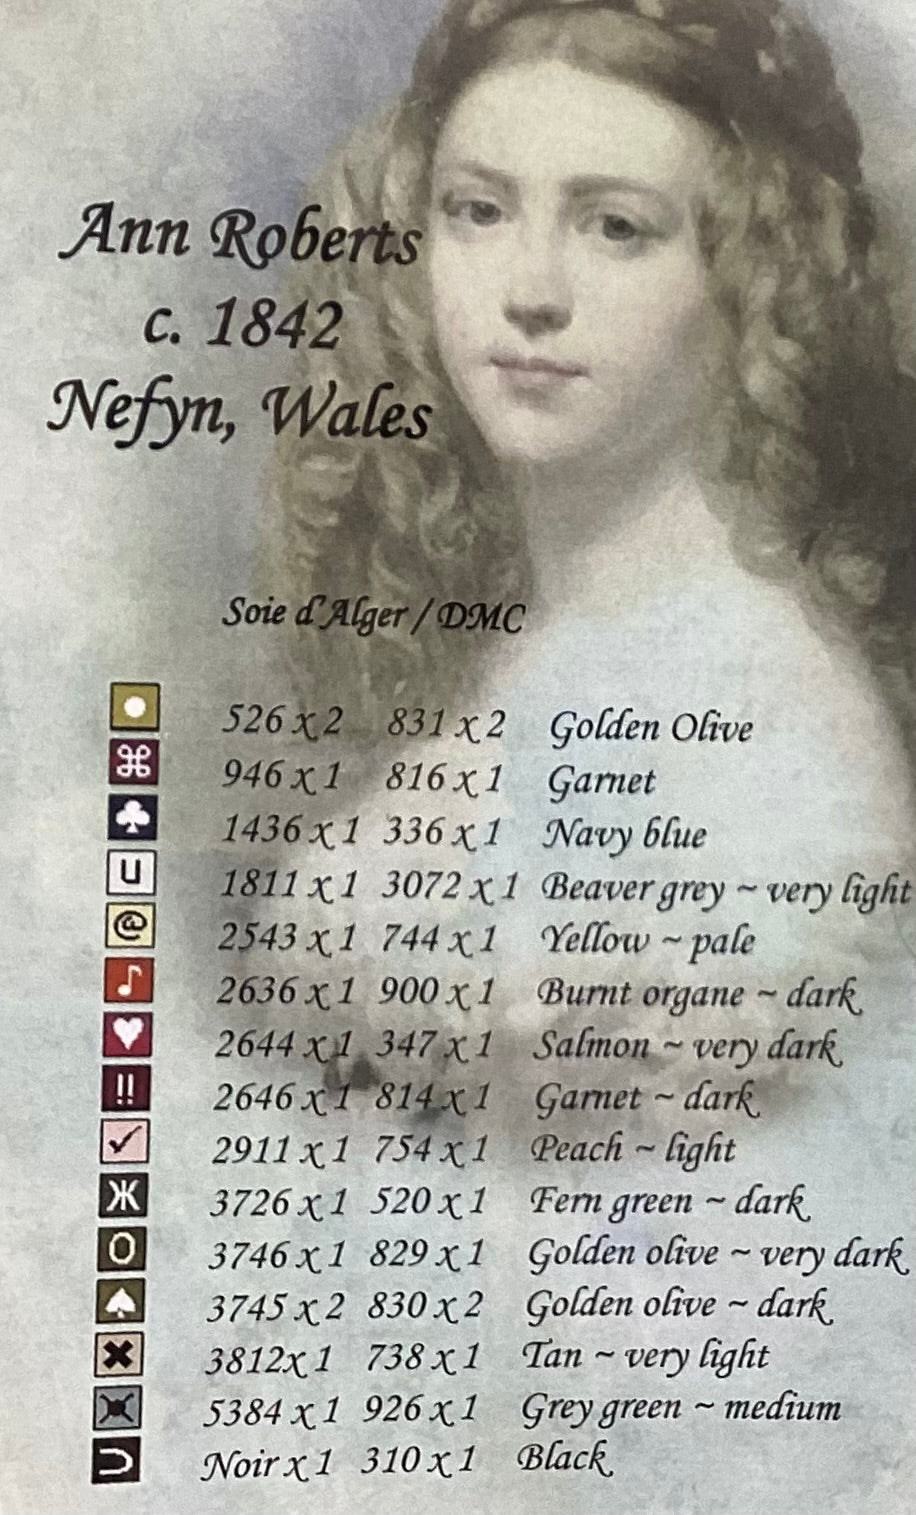 Ann Roberts
c. 1842
Nefyn, Wales
Soie d'Alger / DMC
526 x 2 831 x 2 Golden Olive
⌘ 946 x 1 816 x 1 Garnet
♣ 1436 x 1 336 x 1 Navy blue
U 1811 x 1 3072 x 1 Beaver grey ~ very light
@ 2543 x 1 744 x 1 Yellow ~ pale
♪ 2636 x 1 900 x 1 Burnt organe ~ dark
♥ 2644 x 1 347 x 1 Salmon ~ very dark
!! 2646 x 1 814 x 1 Garnet ~ dark
✓ 2911 x 1 754 x 1 Peach ~ light
Ж 3726 x 1 520 x 1 Fern green ~ dark
O 3746 x 1 829 x 1 Golden olive ~ very dark
♠ 3745 x 2 830 x 2 Golden olive ~ dark
✖ 3812x 1 738 x 1 Tan ~ very light
5384 x 1 926 x 1 Grey green ~ medium
⊃ Noir x 1 310 x 1 Black